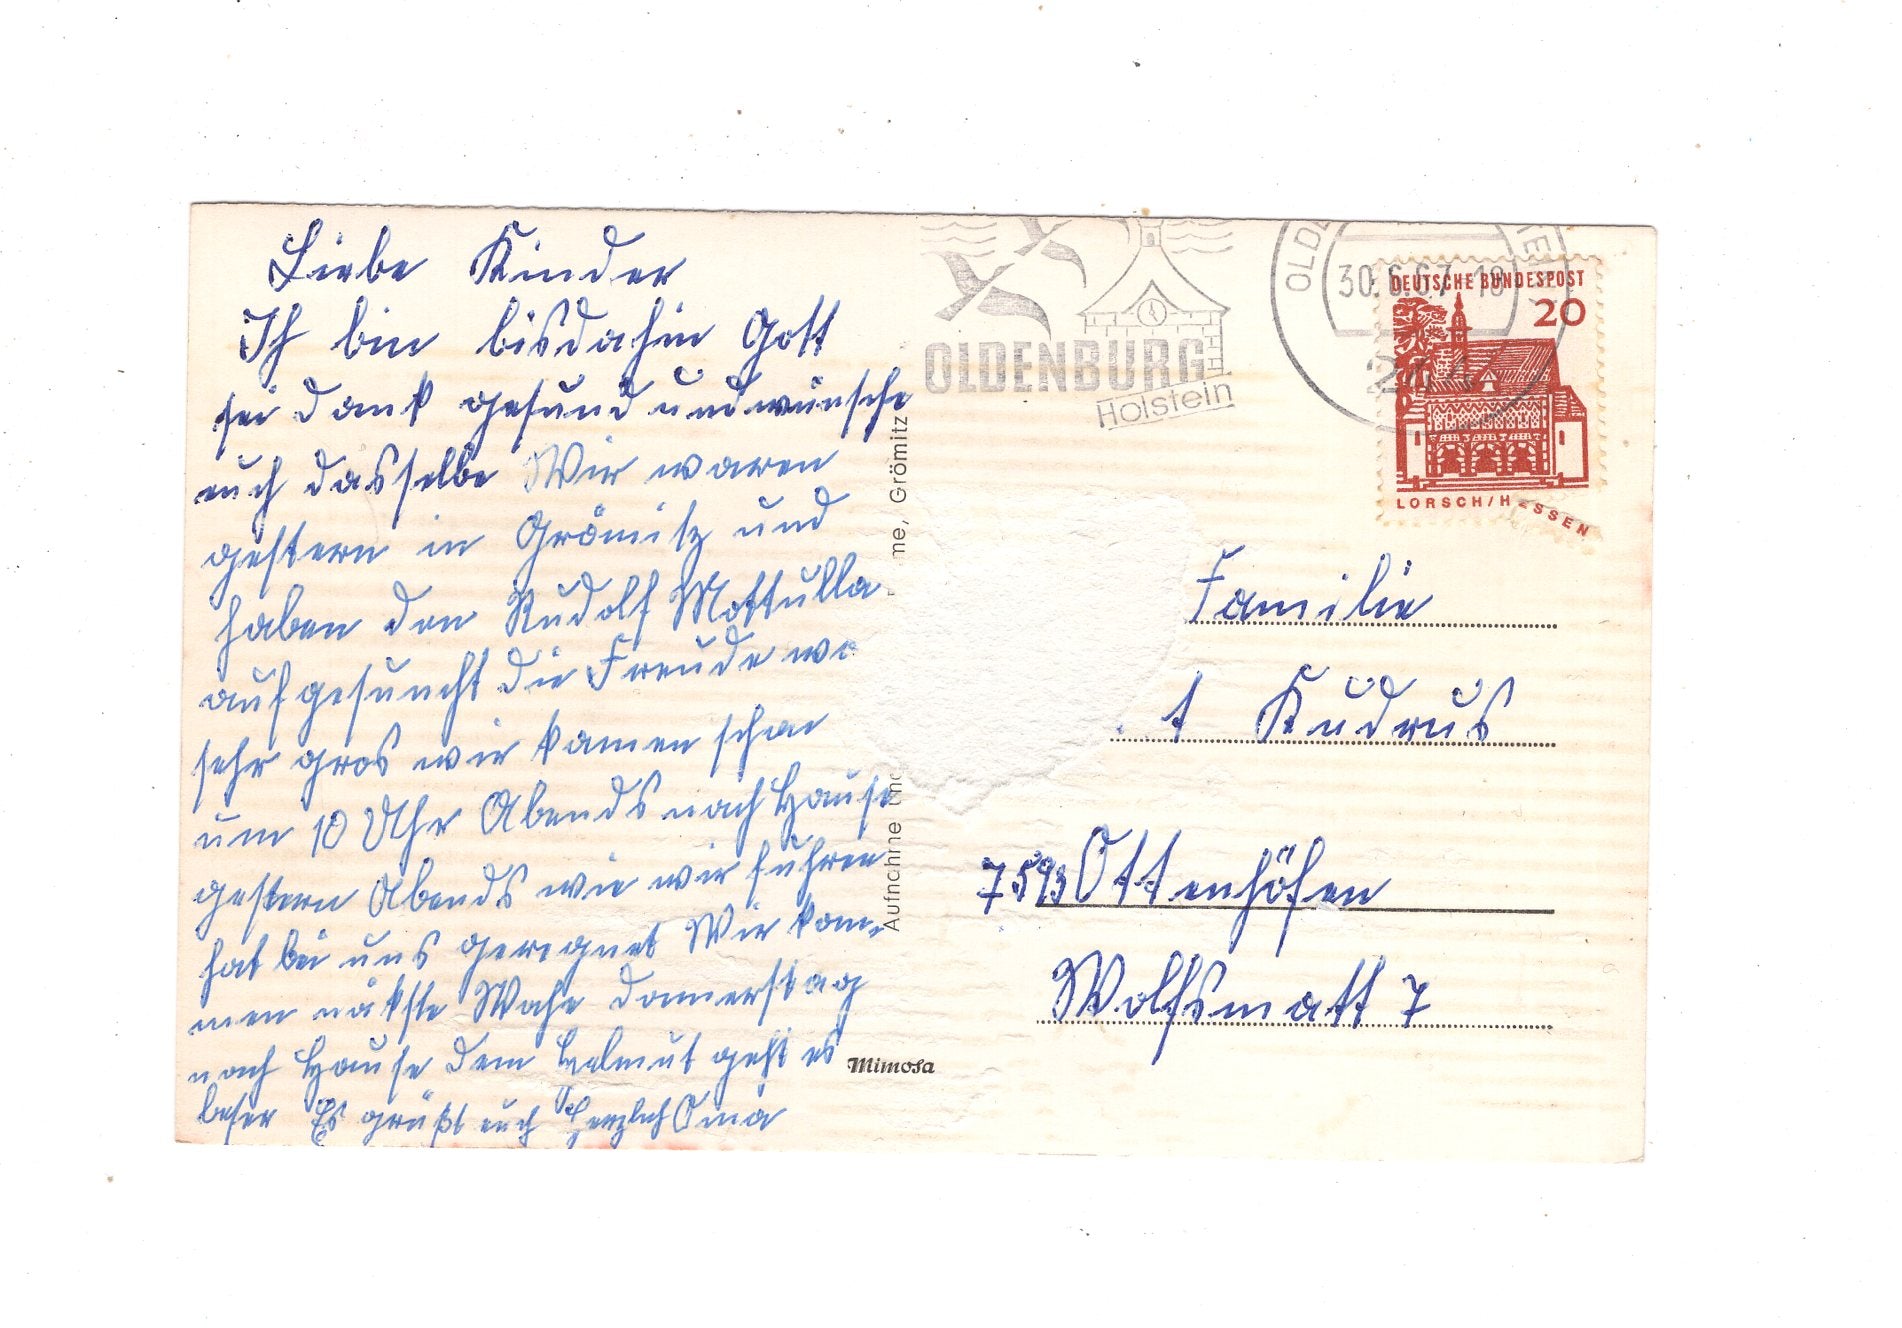 Liebe Kinder
Ich bin bisdahin Gott
sei dank gesund und wünsche
euch dasselbe Wir waren
gestern in Grömitz und
haben den Rudolf Mottulla
aufgesuncht die Freude wa
sehr gros wir kamen schon
um 10 Uhr Abends nach Hause
gestern Abends wie wir fuhren
hat bei uns geregnet Wir kom-
men näkste Wohe Donnerstag
nach Hause dem Helmut geht es
beser Es grüßt euch Herzlich Oma
me, Grömitz
Aufnahme und
Mimosa
OLDENBURG
Holstein
30.6.67-18
DEUTSCHE BUNDESPOST
20
LORSCH/HESSEN
Familie
t Kudrus
7593 Ottenhöfen
Wolfsmatt 7